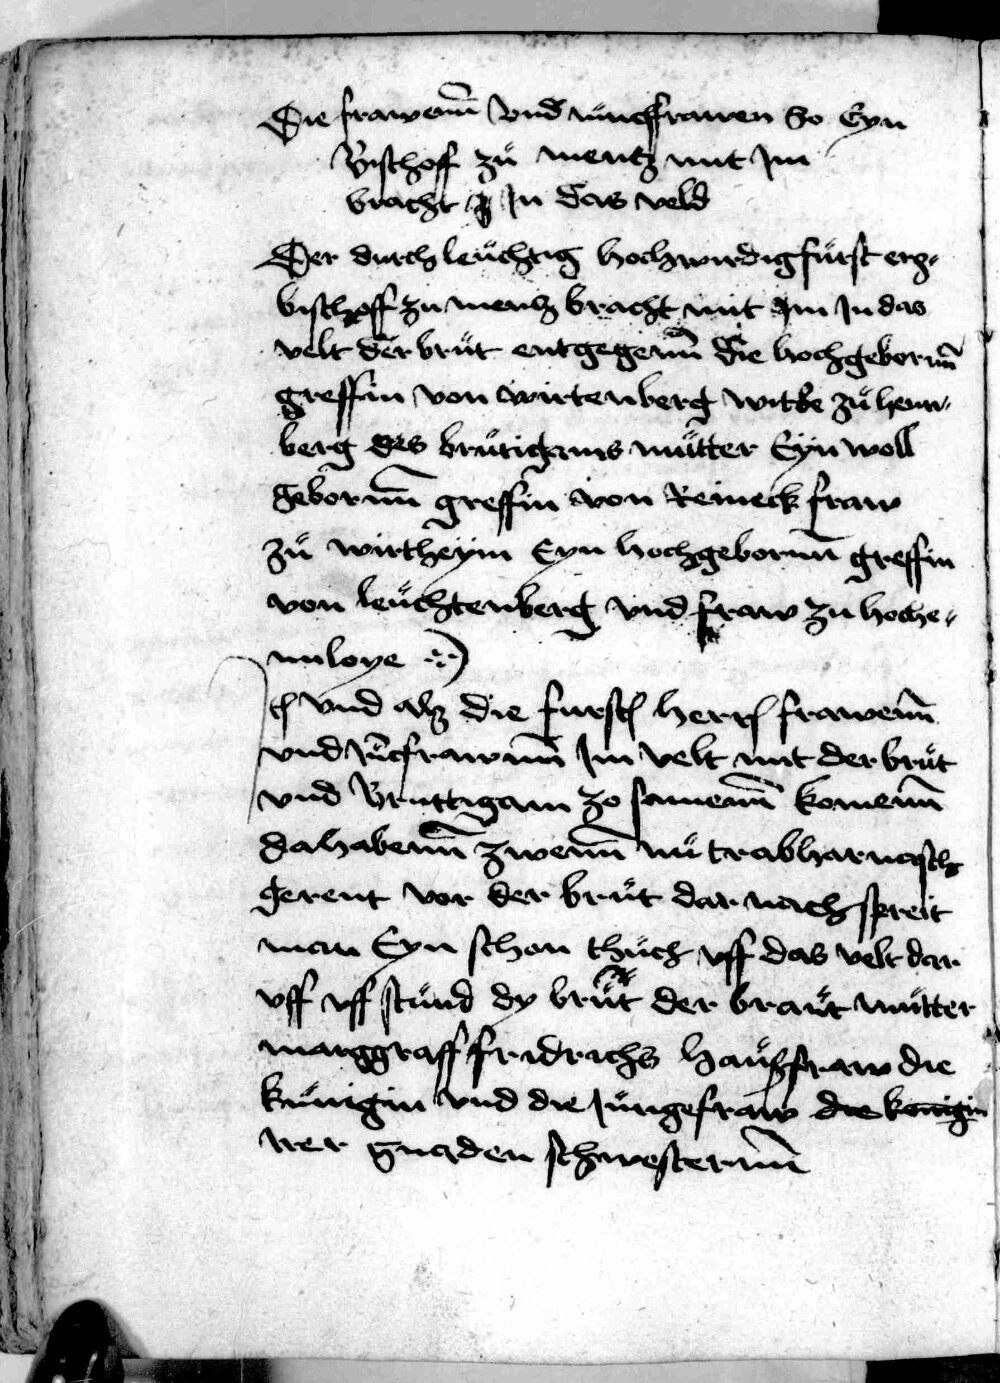 Die frawenn vnd Junckfrawen So Eyn
Bischoff zů mentz mit Im
bracht In das veld
Der durchleůchtig hochwirdig fůrst ertz-
bischoff zu mentz bracht mit Im In das
velt der brůt entgegenn die hochgebornn
greffin von wirtenberg witbe zů henn-
berg des brůtigams můtter Eyn woll
gebornn greffin von Reineck fraw
zů wirtheym Eyn hochgebornn greffin
von leůchtenberg vnd fraw zu hohe-
nnloye
vnd alß die furst herrn frawenn
vnd Jůcfrawnn Im velt mit der brůt
vnd Bruttigam zo samenn komenn
da habenn zwenn Inn trabharnasch
gerent vor der brůt dar nach spreit
man Eyn schon thůch vff das velt dar
vff vff stůnd dy brůt der braůt můtter
marggraff fridrichs haůßfraw die
kůnigin vnd die Jůngefraw die konigin
irer gnaden schwesternn